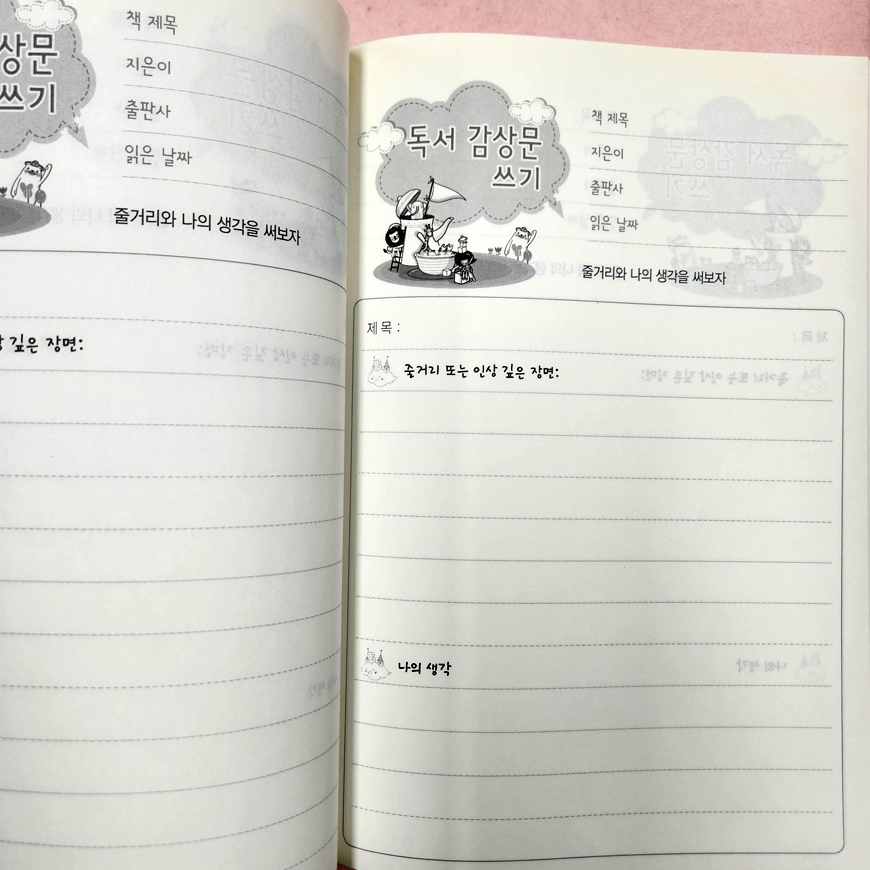 상문
쓰기
책 제목
지은이
출판사
읽은 날짜
줄거리와 나의 생각을 써보자
깊은 장면:
독서 감상문
쓰기
책 제목
지은이
출판사
읽은 날짜
줄거리와 나의 생각을 써보자
제목 :
줄거리 또는 인상 깊은 장면:
나의 생각